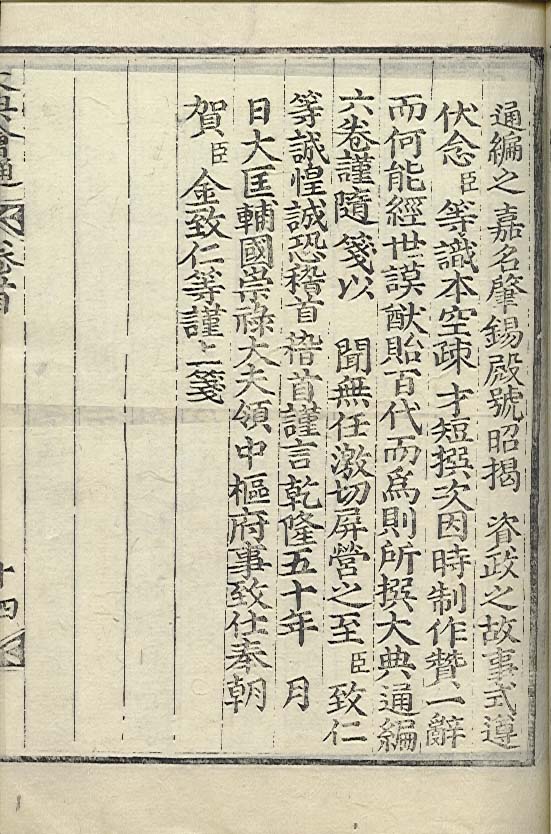 通編之 嘉名肇錫殿號昭揭 睿政之故事式遵
伏念臣等識本空疎才短撰次因時制作贊一辭
而何能經世謨猷貽百代而爲則所撰大典通編
六卷謹隨 箋以 聞無任激切屏營之至臣致仁
等誠惶誠恐稽首稽首謹言乾隆五十年 月
日大匡輔國崇祿大夫領中樞府事致仕奉朝
賀臣金致仁等謹上箋
大典會通 卷首 十四